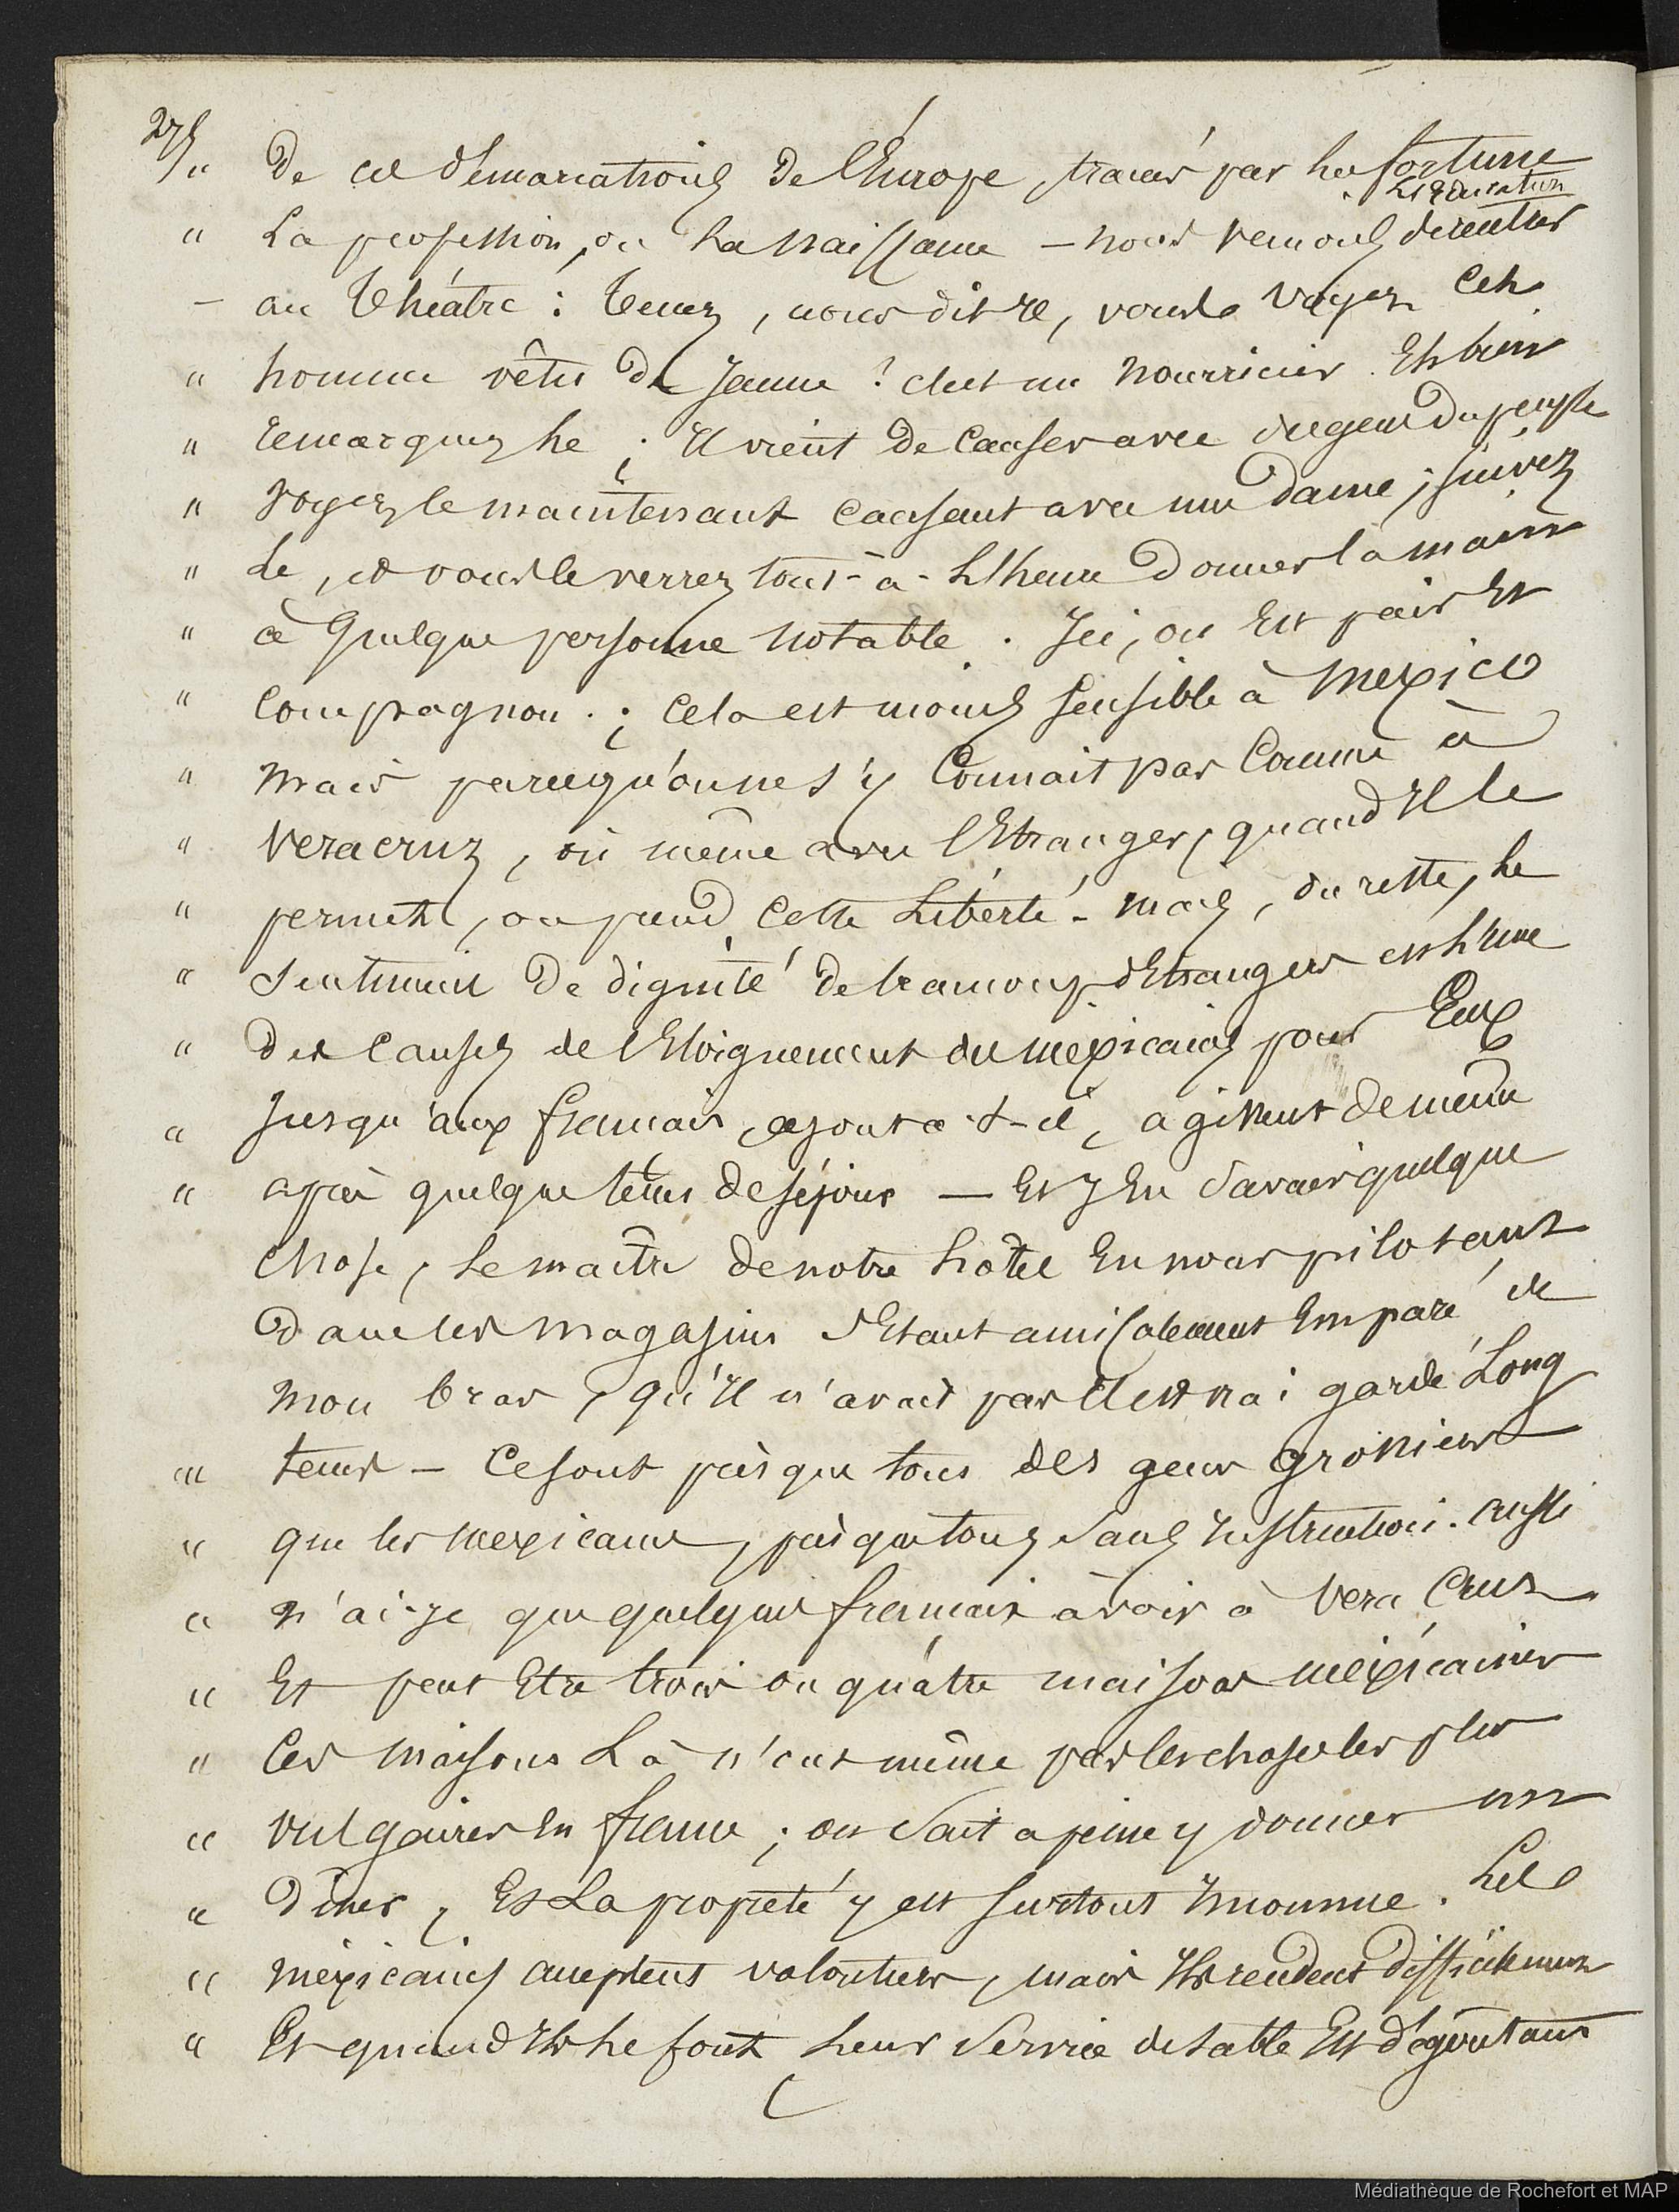 27
" De ces démarcations de l'Europe, tracées par la fortune
l'éducation
" La profession, ou la naissance — nous venons d'entrer
— au théâtre : tenez, nous dit il, vous voyez cet
" homme vêtu de jaune ? c'est un nourricier. Eh bien
" remarquez le ; il vient de causer avec des gens du peuple
" voyez le maintenant causant avec une dame ; suivez
" Le, et vous le verrez tout-à-l'heure donner la main
" à quelque personne notable. Ici, on est pair et
" compagnon. ; cela est moins sensible à Mexico
" mais parcequ'on ne s'y connait pas comme à
" Veracruz, où même avec l'Etranger, quand il le
" permet, on prend cette Liberté — mais, du reste, le
" sentiment de dignité de beaucoup d'Etrangers est l'une
" des causes de l'Eloignement des mexicains pour Eux
" Jusqu'aux français, ajouta-t-il, agissent de même
" après quelque tems de séjour — Et j'En savais quelque
chose, le maître de notre hôtel En nous pilotant
dans les magasins s'Etant amicalement Emparé de
mon bras, qu'il n'avait pas il est vrai gardé Long
" tems — Ce sont presque tous des gens grossiers
" que les mexicains, presque tous sans instruction. aussi
" n'ai-je que quelques français à voir à Vera Cruz
" Et peut Etre trois ou quatre maisons mexicaines
" Ces maisons Là n'ont même pas les choses les plus
" vulgaires En france ; on sait a peine y donner un
" dîner, Et La propreté y est surtout inconnue. Les
" mexicains acceptent volontiers, mais ils rendent difficilement
" Et quand ils le font leur service de table Est dégoutant
Médiathèque de Rochefort et MAP